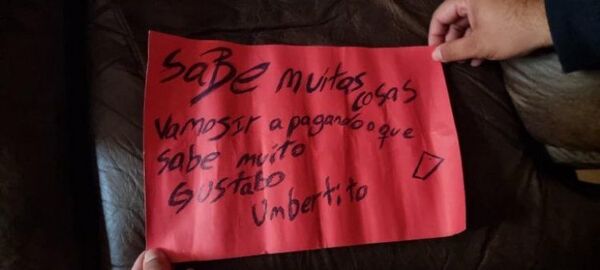 SaBe muitas cosas
Vamos ir a pagando o que
sabe muito
Gustabo
Umbertito